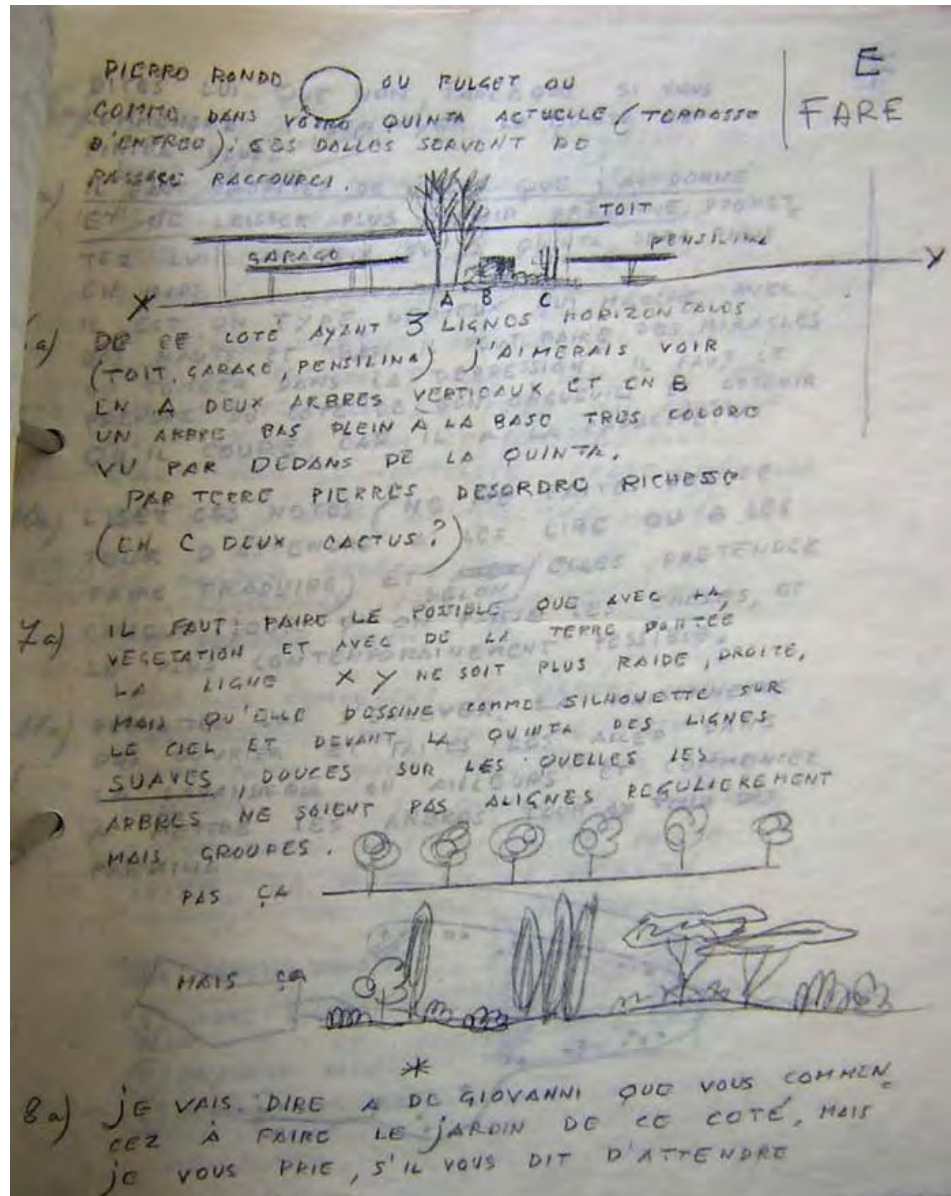 PIERRO RONDO OU FULGET OU
COMME DANS VOTRO QUINTA ACTUELLE (TERRASSO
D'ENTREO). CES DALLES SERVENT DE
PASSAGE RACCOURCI.
E
FARE
TOIT
GARAGO
PENSILINA
X
Y
A B C
6a) DE CE COTÉ AYANT 3 LIGNES HORIZONTALES
(TOIT, GARAGE, PENSILINA) J'AIMERAIS VOIR
EN A DEUX ARBRES VERTICAUX ET EN B
UN ARBRE BAS PLEIN A LA BASE TRES COLORE
VU PAR DEDANS DE LA QUINTA.
PAR TERRE PIERRES DESORDRE RICHESSE
(EN C DEUX CACTUS?)
7a) IL FAUT FAIRE LE POSSIBLE QUE AVEC LA
VEGETATION ET AVEC DE LA TERRE PORTÉE
LA LIGNE X Y NE SOIT PLUS RAIDE, DROITE,
MAIS QU'ELLE DESSINE COMME SILHOUETTE SUR
LE CIEL ET DEVANT LA QUINTA DES LIGNES
SUAVES, DOUCES SUR LES QUELLES LES
ARBRES NE SOIENT PAS ALIGNES REGULIEREMENT
MAIS GROUPES.
PAS ÇA
MAIS ÇA
*
8a) JE VAIS DIRE A DE GIOVANNI QUE VOUS COMMEN
CEZ À FAIRE LE JARDIN DE CE COTÉ, MAIS
JE VOUS PRIE, S'IL VOUS DIT D'ATTENDRE